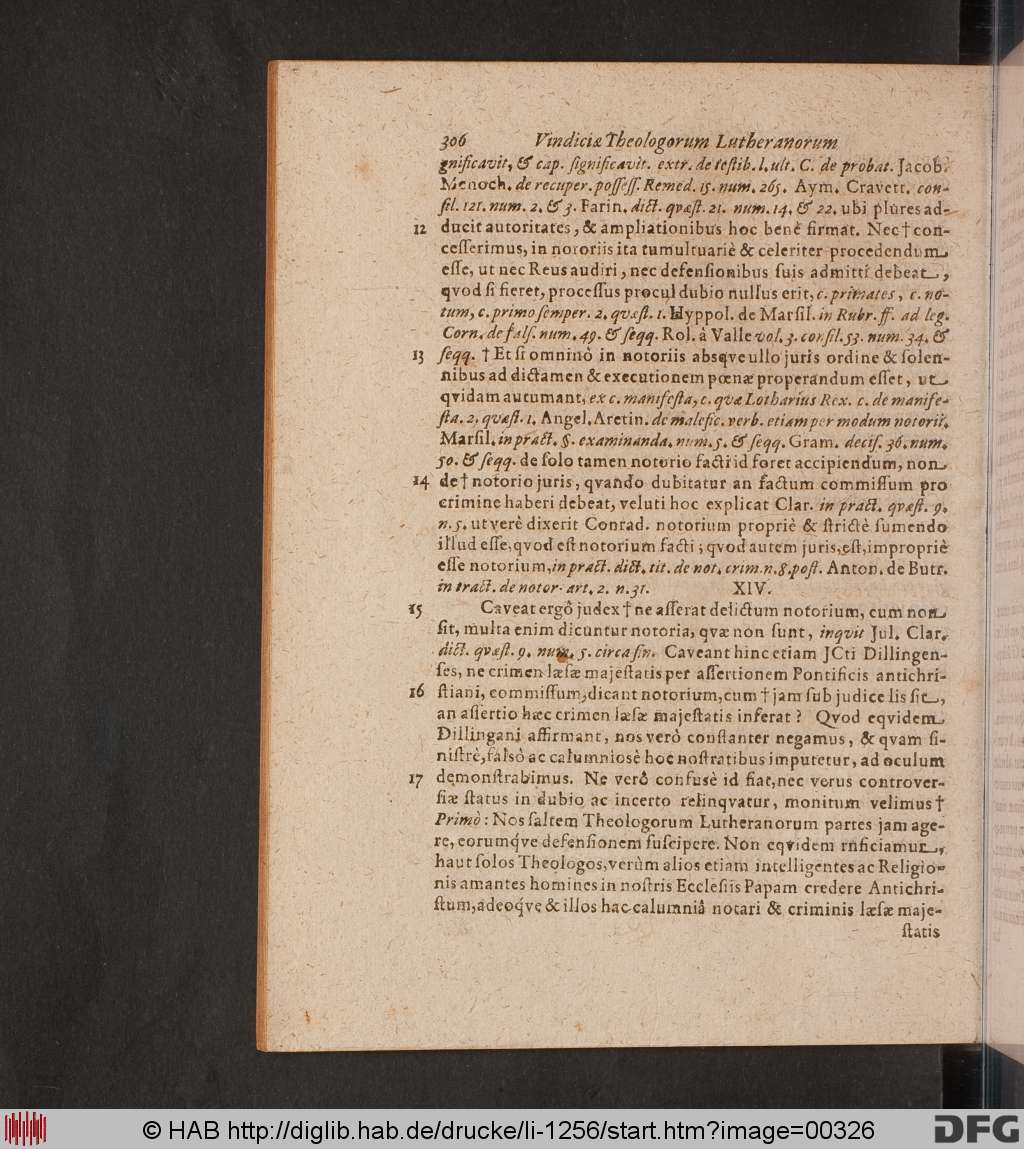 306 Vindiciæ Theologorum Lutheranorum
gnificavit, & cap. ſignificavit. extr. de teſtib. l. ult. C. de probat. Jacob.
Menoch. de recuper. poſſeſſ. Remed. 15. num. 265. Aym. Cravett. con-
ſil. 121. num. 2. & 3. Farin. dict. qvæſt. 21. num. 14. & 22. ubi plures ad-
12 ducit autoritates, & ampliationibus hoc benè firmat. Nec † con-
ceſſerimus, in notoriis ita tumultuariè & celeriter procedendum
eſſe, ut nec Reus audiri, nec defenſionibus ſuis admitti debeat,
qvod ſi fieret, proceſſus procul dubio nullus erit, c. primates, c. no-
tum, c. primo ſemper. 2. qvæſt. 1. Hyppol. de Marſil. in Rubr. ff. ad leg.
Corn. de falſ. num. 49. & ſeqq. Rol. à Valle vol. 3. conſil. 53. num. 34. &
13 ſeqq. † Et ſi omninò in notoriis absqve ullo juris ordine & ſolen-
nibus ad dictamen & executionem pœnæ properandum eſſet, ut
qvidam autumant, ex c. manifeſta, c. qvæ Lotharius Rex. c. de manife-
ſta. 2. qvæſt. 1. Angel. Aretin. de malefic. verb. etiam per modum notorii.
Marſil. in pract. §. examinanda. num. 5. & ſeqq. Gram. deciſ. 36. num.
50. & ſeqq. de ſolo tamen notorio facti id foret accipiendum, non
14 de † notorio juris, qvando dubitatur an factum commiſſum pro
crimine haberi debeat, veluti hoc explicat Clar. in pract. qvæſt. 9.
n. 5. ut verè dixerit Conrad. notorium propriè & ſtrictè ſumendo
illud eſſe, qvod eſt notorium facti; qvod autem juris, eſt, impropriè
eſſe notorium, in pract. dict. tit. de not. crim. n. 8. poſt. Anton. de Butr.
in tract. de notor. art. 2. n. 31. XIV.
15 Caveat ergò judex † ne aſſerat delictum notorium, cum non
ſit, multa enim dicuntur notoria, qvæ non ſunt, inqvit Jul. Clar.
dict. qvæſt. 9. num. 5. circa fin. Caveant hinc etiam JCti Dillingen-
ſes, ne crimen læſæ majeſtatis per aſſertionem Pontificis antichri-
16 ſtiani, commiſſum, dicant notorium, cum † jam ſub judice lis ſit,
an aſſertio hæc crimen læſæ majeſtatis inferat? Qvod eqvidem
Dillingani affirmant, nos verò conſtanter negamus, & qvam ſi-
niſtrè, falsò ac calumniosè hoc noſtratibus imputetur, ad oculum
17 demonſtrabimus. Ne verò confusè id fiat, nec verus controver-
ſiæ ſtatus in dubio ac incerto relinqvatur, monitum velimus †
Primò: Nos ſaltem Theologorum Lutheranorum partes jam age-
re, eorumq́ve defenſionem ſuſcipere. Non eqvidem inficiamur,
haut ſolos Theologos, verùm alios etiam intelligentes ac Religio-
nis amantes homines in noſtris Eccleſiis Papam credere Antichri-
ſtum, adeoq́ve & illos hac calumniâ notari & criminis læſæ maje-
ſtatis
© HAB http://diglib.hab.de/drucke/li-1256/start.htm?image=00326
DFG